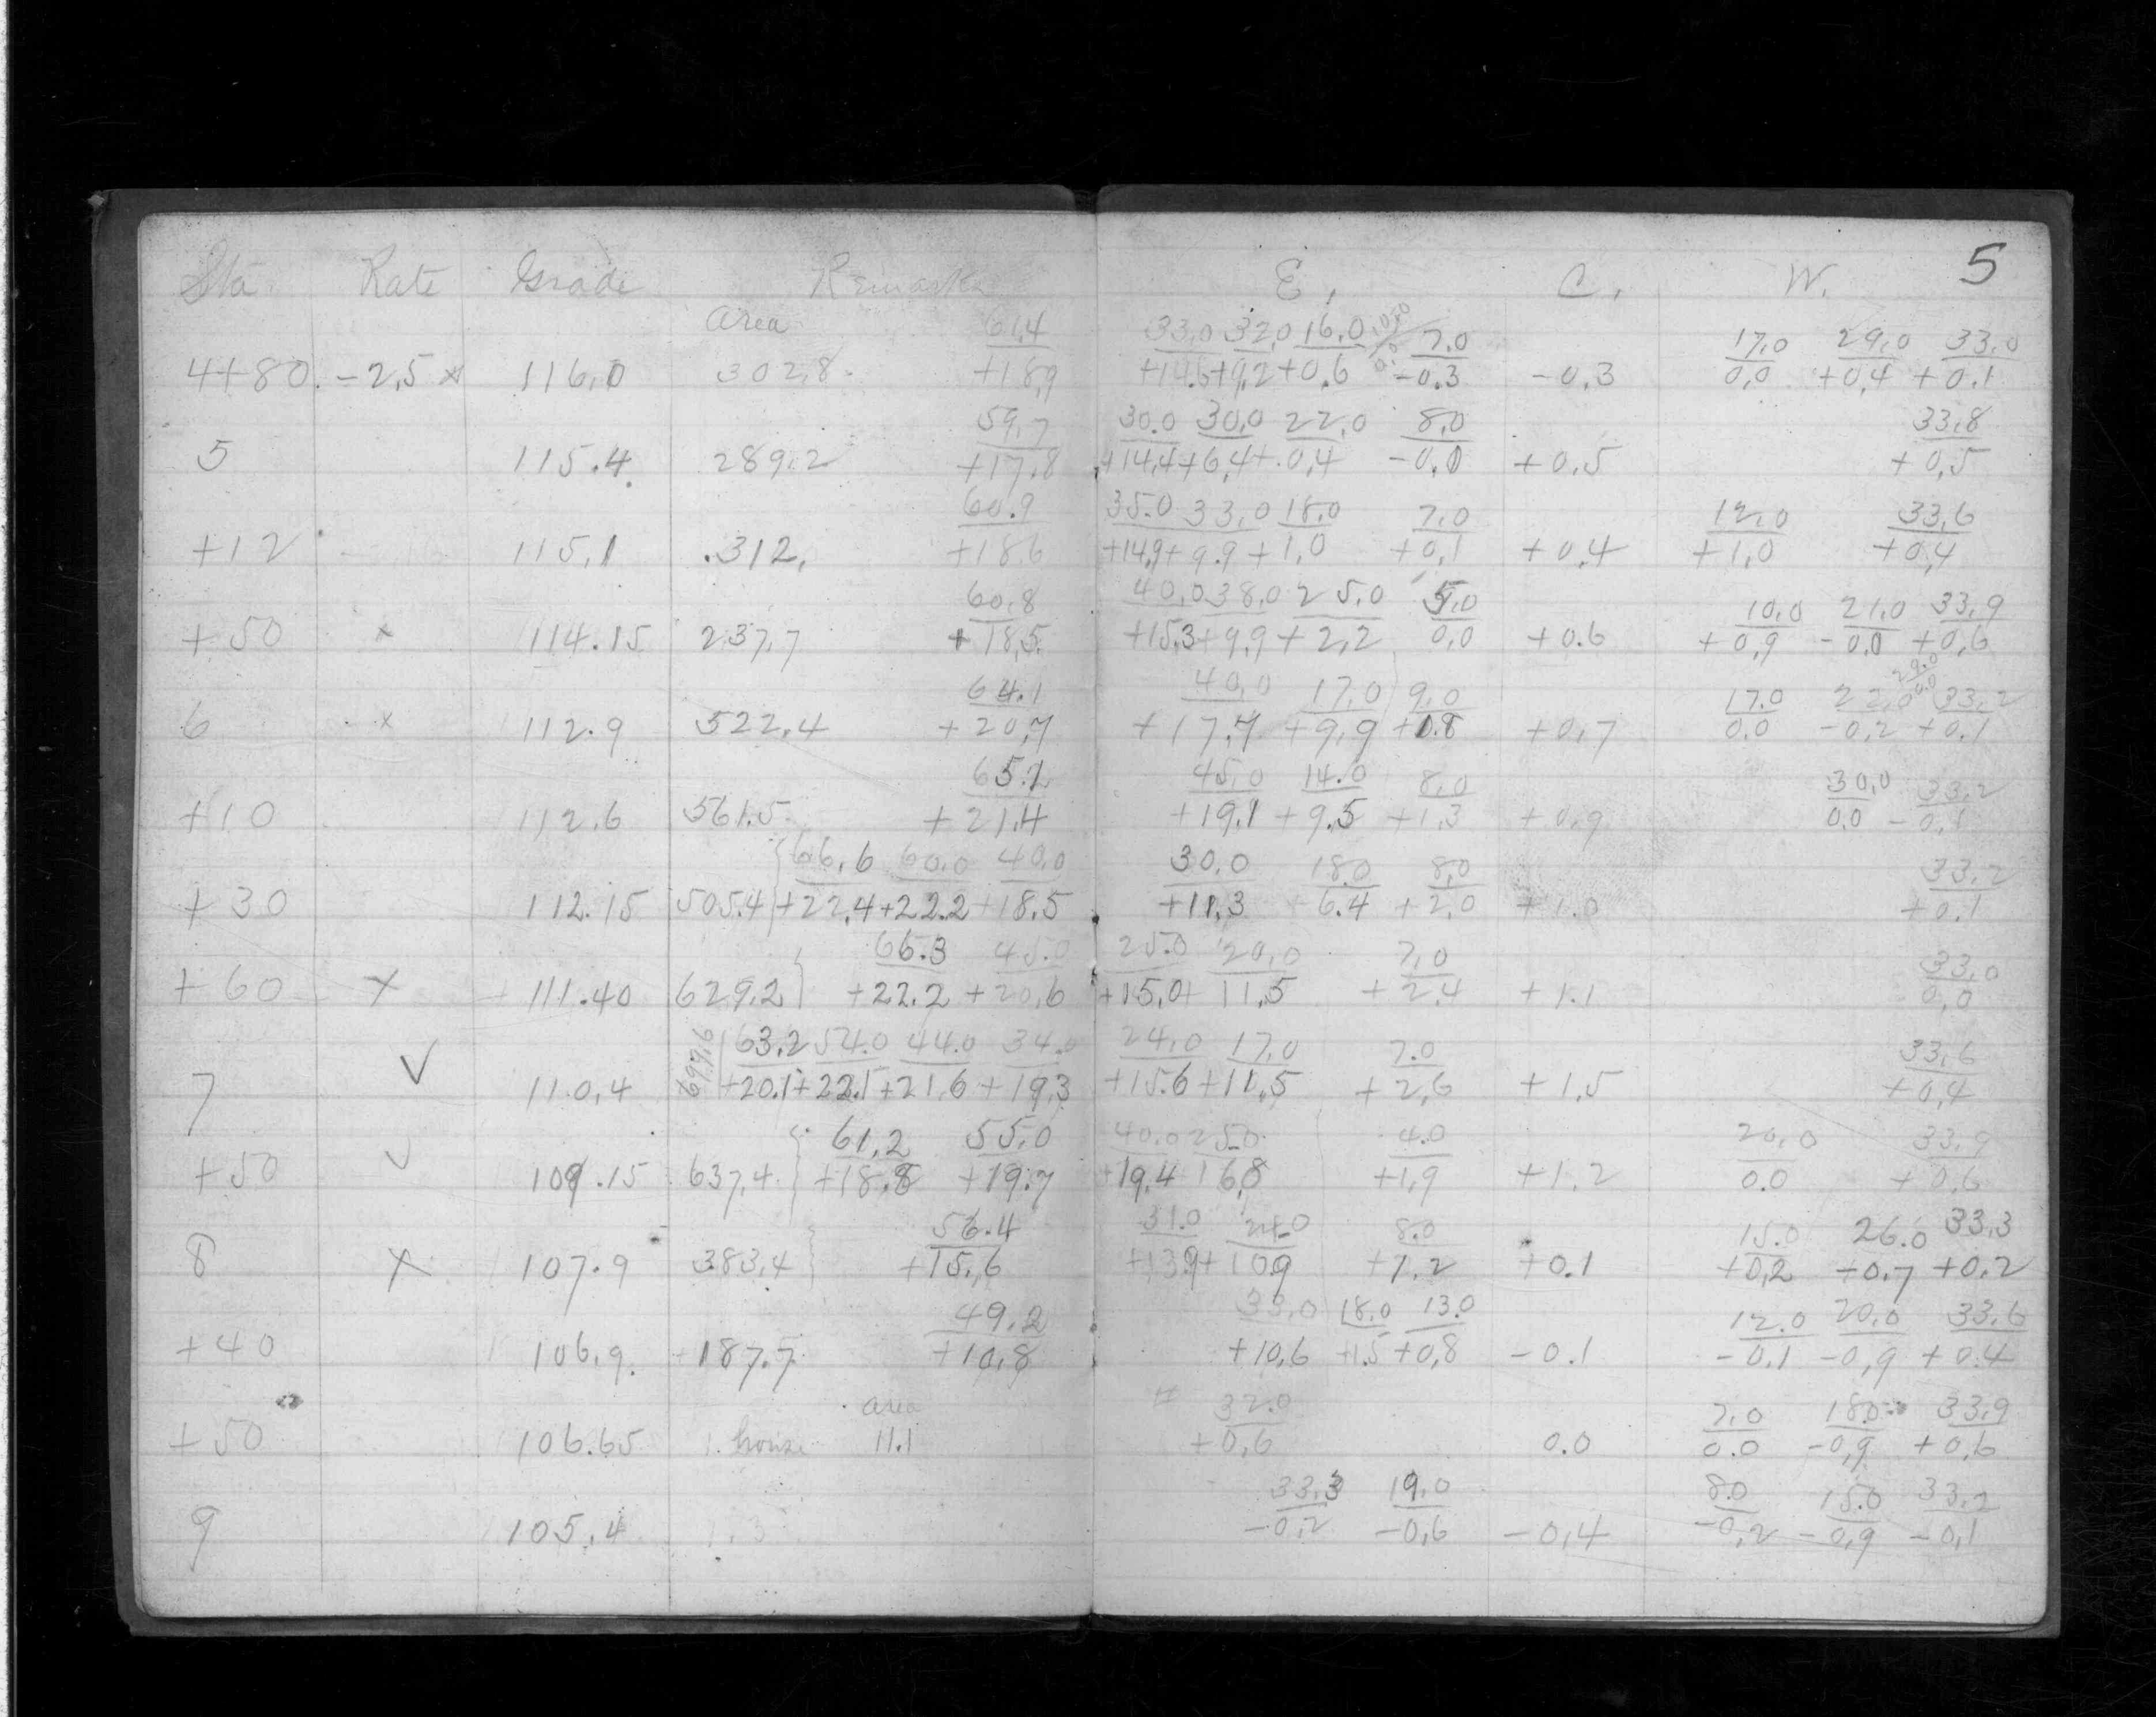 Sta. Rate Grade Remarks E. C. W. 5
Area 61.4 33.0 32.0 16.0 10.0 7.0 17.0 29.0 33.0
4+80. -2.5 x 116.0 302.8 +18.9 +14.5 +9.2 +0.6 0.0 -0.3 -0.3 0.0 +0.4 +0.1
59.7 30.0 30.0 22.0 8.0 33.8
5 115.4 289.2 +17.8 +14.4 +6.4 +0.4 -0.0 +0.5 +0.5
60.9 35.0 33.0 18.0 7.0 12.0 33.6
+12 115.1 312. +18.6 +14.9 +9.9 +1.0 +0.1 +0.4 +1.0 +0.4
60.8 40.0 38.0 25.0 5.0 10.0 21.0 33.9
+50 x 114.15 237.7 +18.5 +15.3 +9.9 +2.2 0.0 +0.6 +0.9 -0.0 +0.6
64.1 40.0 17.0 9.0 17.0 22.0 29.0 33.2
6 x 112.9 522.4 +20.7 +17.7 +9.9 +0.8 +0.7 0.0 -0.2 0.0 +0.1
65.1 45.0 14.0 8.0 30.0 33.2
+10 112.6 561.5 +21.4 +19.1 +9.5 +1.3 +0.9 0.0 -0.1
66.6 60.0 40.0 30.0 18.0 8.0 33.2
+30 112.15 505.4 +22.4 +22.2 +18.5 +11.3 6.4 +2.0 +1.0 +0.1
66.3 45.0 25.0 20.0 7.0 33.0
+60 x 111.40 629.2 +22.2 +20.6 +15.0 + 11.5 +2.4 +1.1 0.0
63.2 54.0 44.0 34.0 24.0 17.0 7.0 33.6
7 V 110.4 697.6 +20.1 +22.1 +21.6 +19.3 +15.6 +11.5 +2.6 +1.5 +0.4
61.2 55.0 40.0 25.0 4.0 20.0 33.9
+50 V 109.15 637.4 +18.8 +19.7 +19.4 16.8 +1.9 +1.2 0.0 +0.6
56.4 31.0 24.0 8.0 15.0 26.0 33.3
8 x 107.9 383.4 +15.6 +13.9 +10.9 +1.2 +0.1 +0.2 +0.7 +0.2
49.2 33.0 18.0 13.0 12.0 20.0 33.6
+40 106.9 187.7 +10.8 +10.6 +1.5 +0.8 -0.1 -0.1 -0.9 +0.4
area 32.0 7.0 18.0 33.9
+50 106.65 house 11.1 +0.6 0.0 0.0 -0.9 +0.6
33.3 19.0 8.0 15.0 33.2
9 105.4 1.3 -0.2 -0.6 -0.4 -0.2 -0.9 -0.1